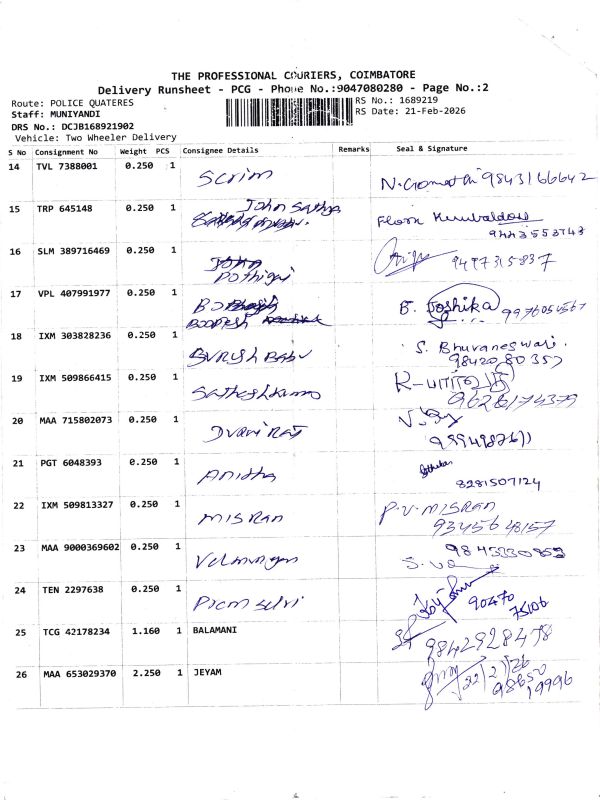 THE PROFESSIONAL COURIERS, COIMBATORE
Delivery Runsheet - PCG - Phone No.:9047080280 - Page No.:2
Route: POLICE QUATERES
RS No.: 1689219
Staff: MUNIYANDI
RS Date: 21-Feb-2026
DRS No.: DCJB168921902
Vehicle: Two Wheeler Delivery
S No Consignment No Weight PCS Consignee Details Remarks Seal & Signature
14 TVL 7388001 0.250 1 N. Gomathi 9843166642
15 TRP 645148 0.250 1 John Sathya
9443553743
16 SLM 389716469 0.250 1 Pothigai 9497315837
17 VPL 407991977 0.250 1 B. Joshika 9976054567
18 IXM 303828236 0.250 1 Suresh Babu S. Bhuvaneswari.
9842080357
19 IXM 509866415 0.250 1 Satheshkumar
9626174379
20 MAA 715802073 0.250 1 Dvairaj
9994987611
21 PGT 6048393 0.250 1 Anitha
8281507124
22 IXM 509813327 0.250 1 MISRAN P.V. MISRAN
9345648157
23 MAA 9000369602 0.250 1 Velmurugan
24 TEN 2297638 0.250 1 Prem Selvi 90470
75106
25 TCG 42178234 1.160 1 BALAMANI 9842928478
26 MAA 653029370 2.250 1 JEYAM 22/2/26
98650
19996